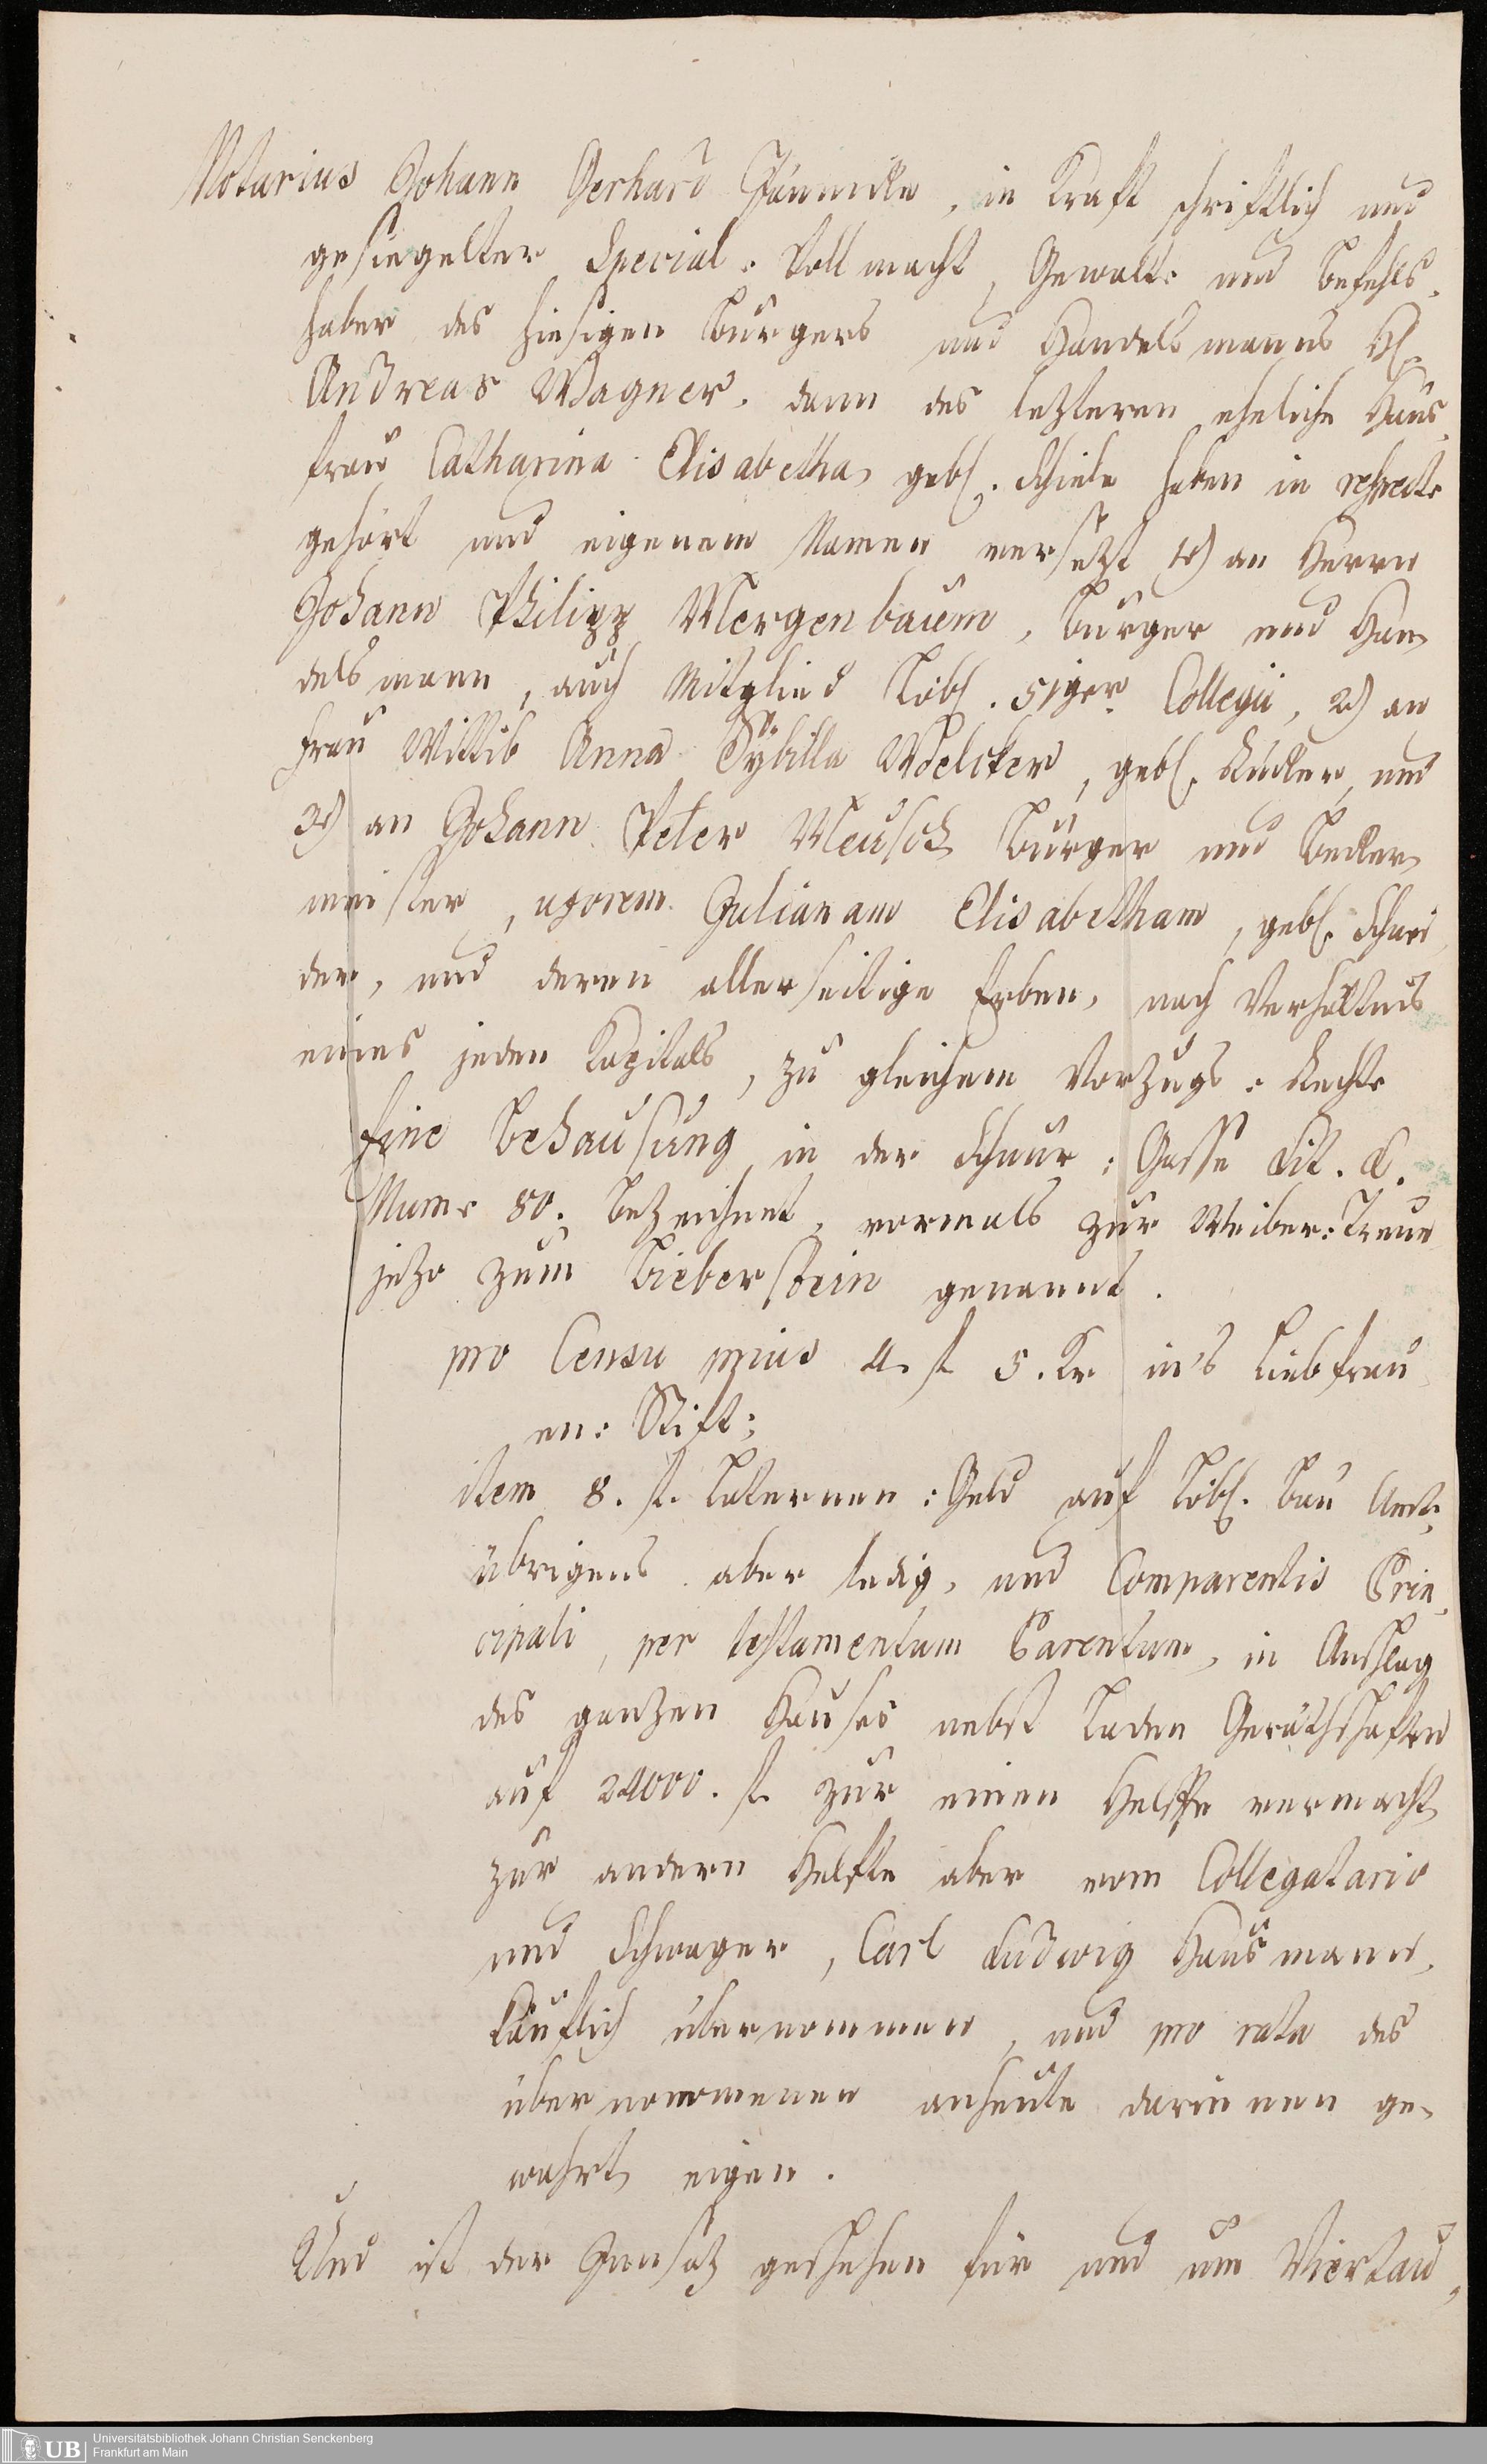 Notarius Johann Gerhard Jännicke, in Kraft schriftlich und
gesiegelter Special-Vollmacht, Gewalt- und Befehls-
haber des hiesigen Burgers und Handelsmanns H.
Andreas Wagner, dann des letzteren eheliche Haus-
frau Catharina Elisabetha, geb. Schiele haben in respect.
gehört und eigenem Namen versezt 1.) an Herrn
Johann Philipp Mergenbaum, Burger und Han-
delsmann, auch Mitglied Löbl. 51ger Collegii, 2.) an
Frau Wittib Anna Sÿbilla Woelcker, geb. und
3.) an Johann Peter Meusch Burger und Becker-
meister, uxorem Julianam Elisabetham, geb. Schnei-
der, und deren allerseitige Erben, nach Verhältnis
eines jeden Kapitals, zu gleichem Vorzugs-Rechte
Eine Behausung in der Schnur-Gasse Lit. 
Num. 80. bezeichnet, vormals zur Weiber-Treue
jezo zum Bieberstein genannt.
pro Censu prius 4. f 5. Kr in's Liebfrau-
en-Stift;
item 8. f. Laternen-Geld auf Löbl. Bau Amt;
übrigens aber ledig, und Comparentis Prin-
cipali, per testamentum Parentum, in Anschlag
des ganzen Hauses nebst Laden Geräthschaften
auf 24000. f. zur einen Helfte vermacht
zur andern Helfte aber vom Collegatario
und Schwager, Carl Ludwig Hausmann,
käuflich übernommen, und pro rata des
übernommenen anheute darinnen ge-
wehrt, eigen.
Und ist der Innsatz geschehen für und um Viertau-
Universitätsbibliothek Johann Christian Senckenberg
Frankfurt am Main
UB